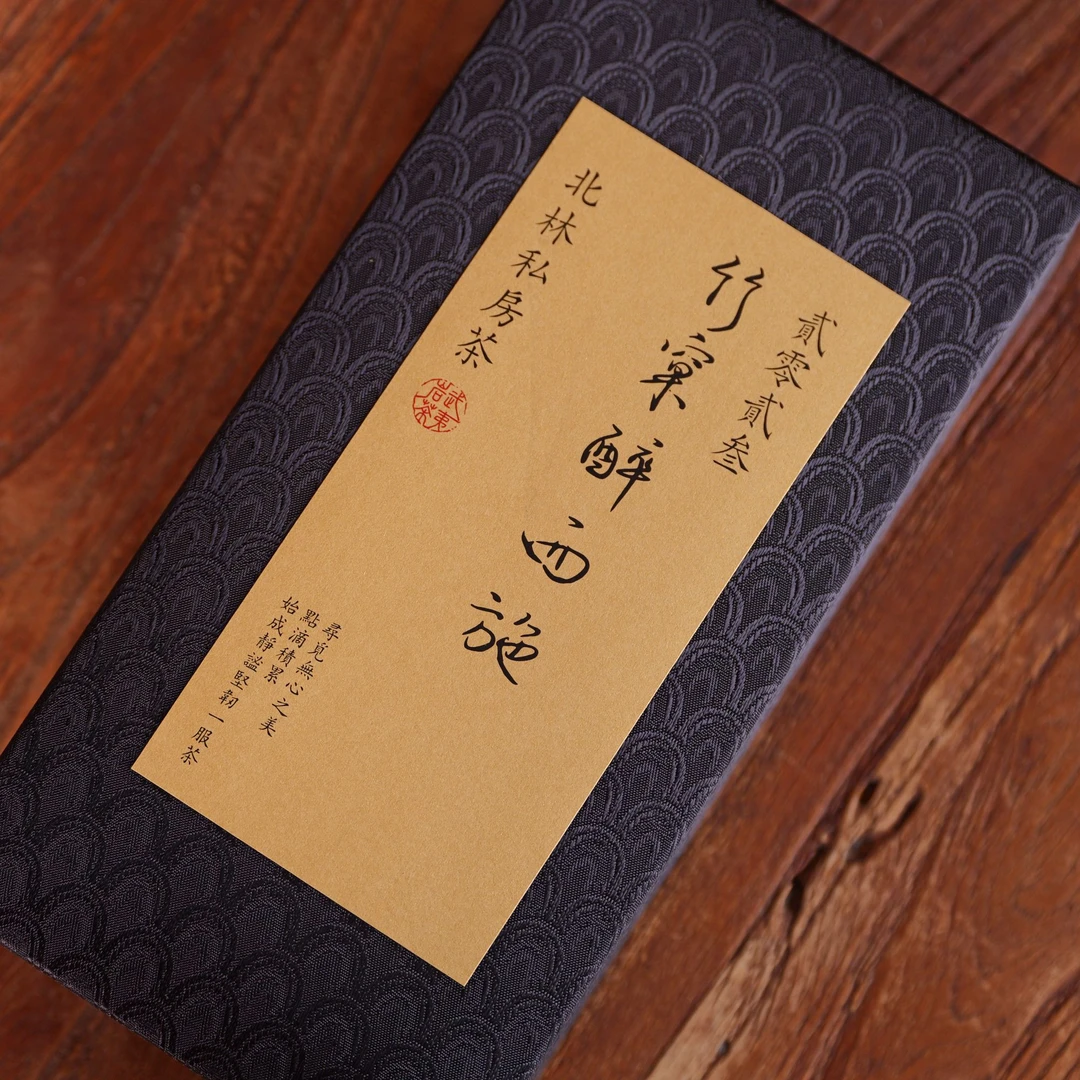 貳零貳叁
竹窠醉西施
北林私房茶
武夷
岩茶
尋覓無心之美
點滴積累
始成靜謐堅韌一服茶